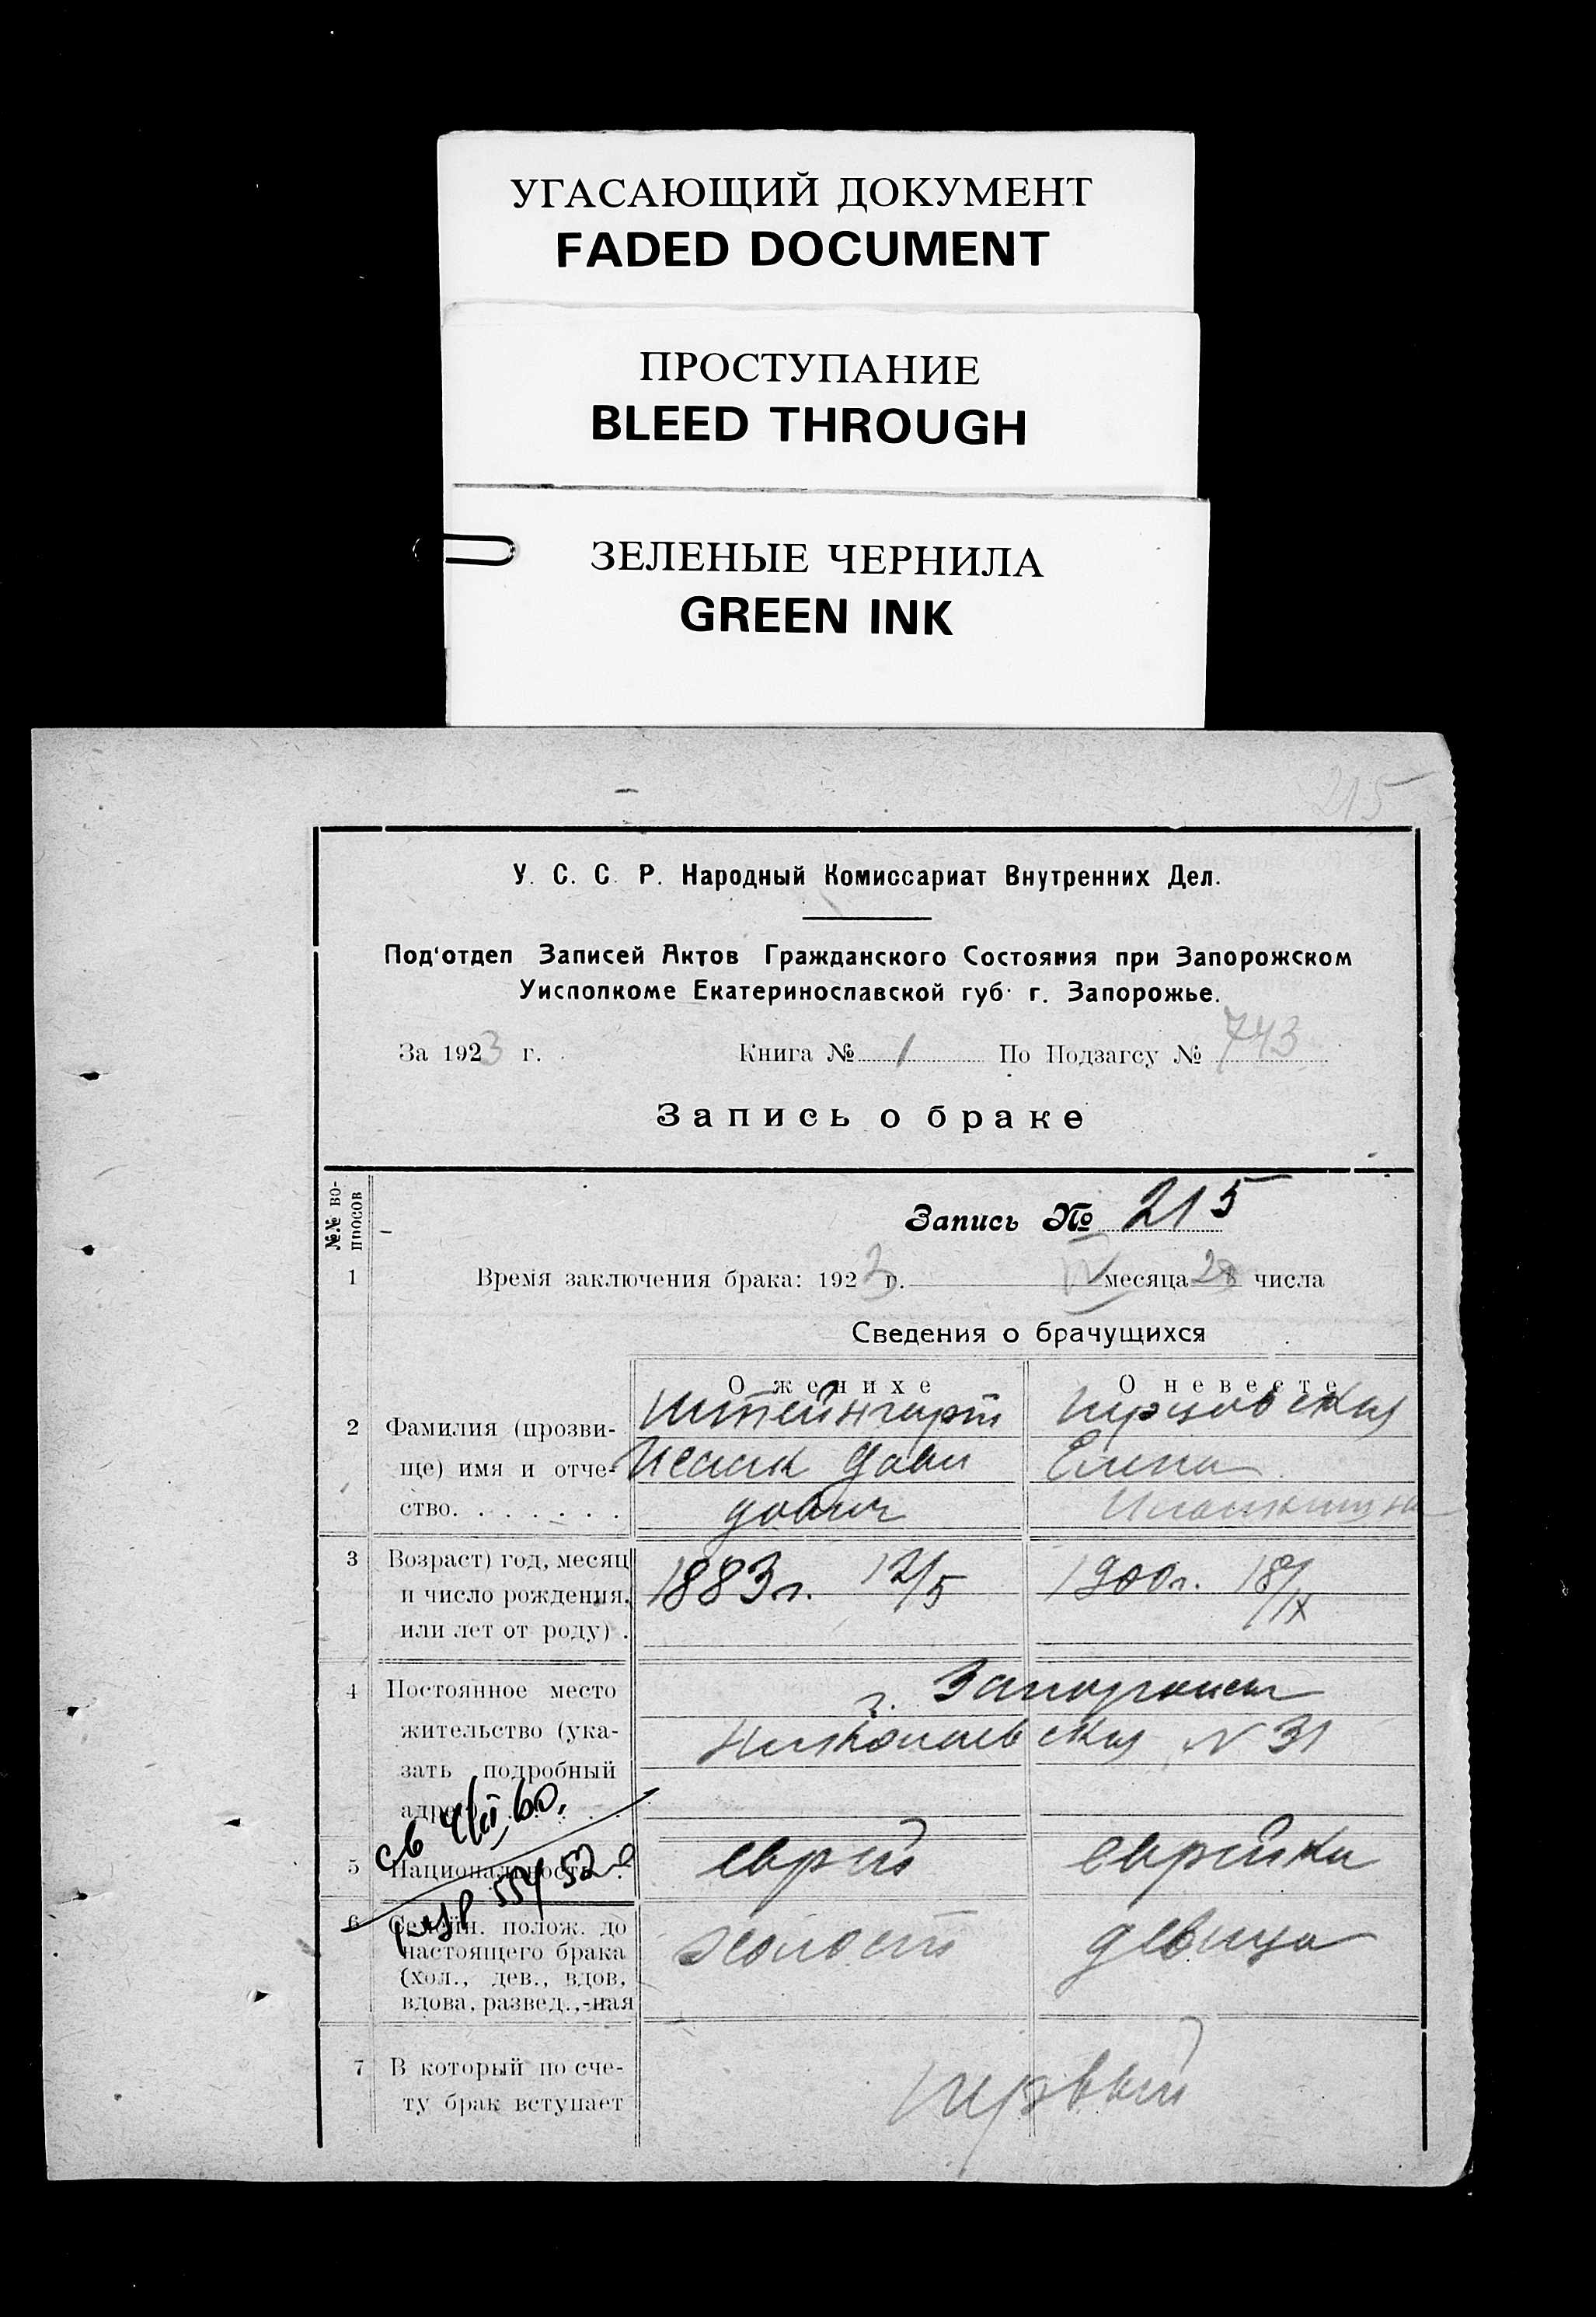 УГАСАЮЩИЙ ДОКУМЕНТ
FADED DOCUMENT
ПРОСТУПАНИЕ
BLEED THROUGH
ЗЕЛЕНЫЕ ЧЕРНИЛА
GREEN INK
215
У. С. С. Р. Народный Комиссариат Внутренних Дел.
Под'отдел Записей Актов Гражданского Состояния при Запорожском
Уисполкоме Екатеринославской губ. г. Запорожье.
За 1923 г. Книга № 1 По Подзагсу № 743
Запись о браке
№№ во-
просов
Запись № 215
1 Время заключения брака: 1923 г. месяца 28 числа
Сведения о брачущихся
О женихе О невесте
2 Фамилия (прозви- Штейнгарт
ще) имя и отче- Исаак Дави Елена
ство. . . . . . . дович
3 Возраст) год, месяц 1883 г. 12/5 1900 г. 18/IX
и число рождения,
или лет от роду) .
4 Постоянное место г. Запорожье
жительство (ука- Николаевская № 31
зать подробный
5 Национальность еврей еврейка
6 Семейн. полож. до холост девица
настоящего брака
(хол., дев., вдов,
вдова, развед.,-ная
7 В который по сче- первый
ту брак вступает